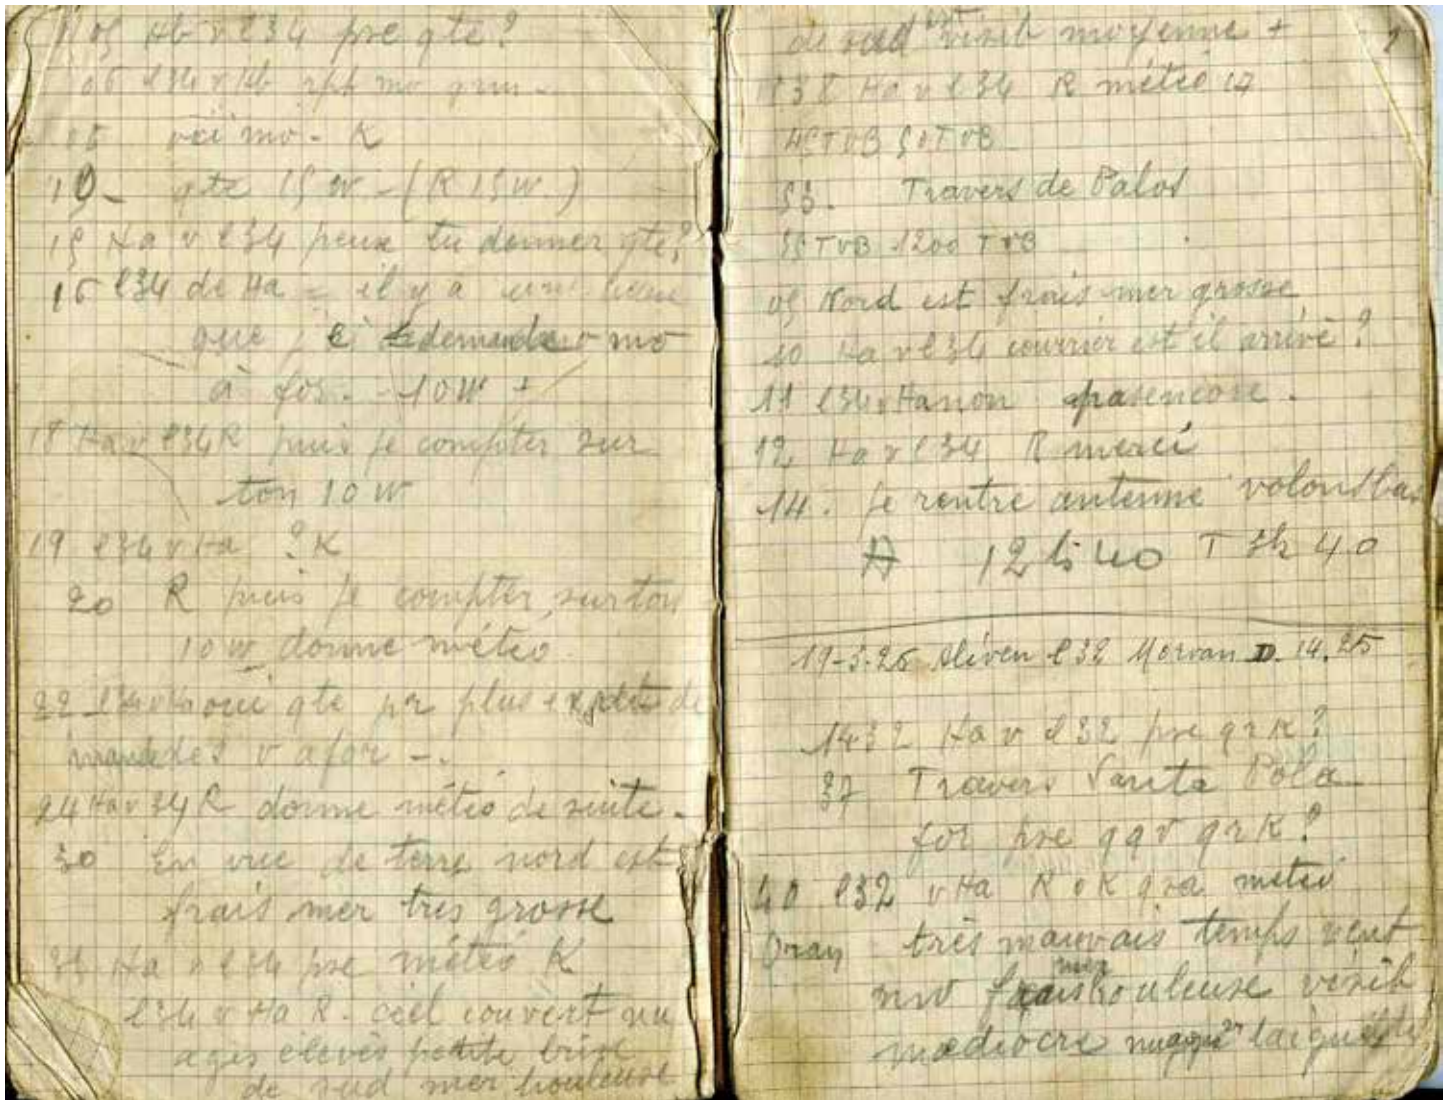 05 Hb v l34 pse gte?
05 l34 v Hb rpt mo
mo - K
10 - gte 15 W - (R 15 W.)
15 Ha v l34 peux tu donner gte?
16 l34 de Ha = il y a une
que demande mo
à for. - 10W +
18 Ha v l34 R puis je compter sur
ton 10 W
19 l34 v Ha ? K
20 R puis je compter sur ton
10 W donne météo
22 l34 v Ha oui gte pr plus de
v a for -.
24 Ha v 34 R donne météo de suite.
30 En vue de terre nord est
frais mer très grosse
Ha v l34 pse météo K
l34 v Ha R. ciel couvert nu
ages élevés petite brise
de sud mer houleuse
de sud est visib moyenne +
1138 Ha v l34 R météo 17
45 TVB 50 TVB
53. Travers de Palos
55 TVB 1200 TVB
05 Nord est frais mer grosse
10 Ha v l34 courrier est il arrivé?
11 l34 v Ha non pas encore.
12 Ha v l34 R merci
14. je rentre antenne volons bas
A 12 h 40 T 3h 40
19-3-26 l32 Morvan D. 14.25
1432 Ha v l32 pse qrk?
37 Travers Santa Pola
for pse qqv qrk?
40 l32 v Ha R v K qra météo
Oran très mauvais temps vent
nw frais mer houleuse visib
médiocre